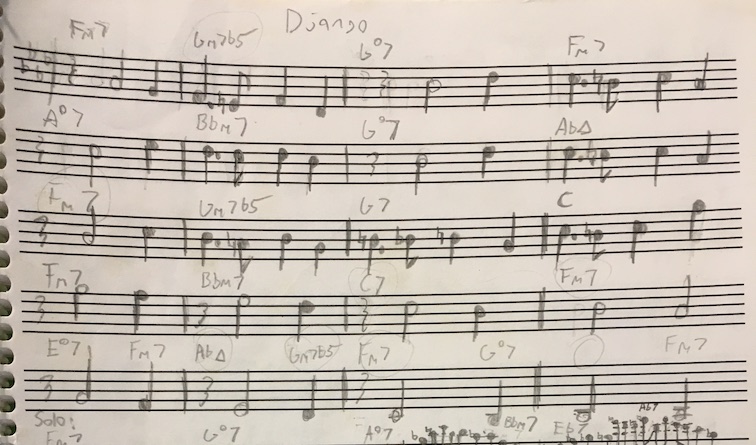 Django
Fm7 Gm7b5 G°7 Fm7
A°7 Bbm7 G°7 AbΔ
Fm7 Gm7b5 G7 C
Fm7 Bbm7 C7 Fm7
E°7 Fm7 AbΔ Gm7b5 Fm7 G°7 Fm7
Solo:
Fm7 G°7 A°7 Bbm7 Eb7 Ab7